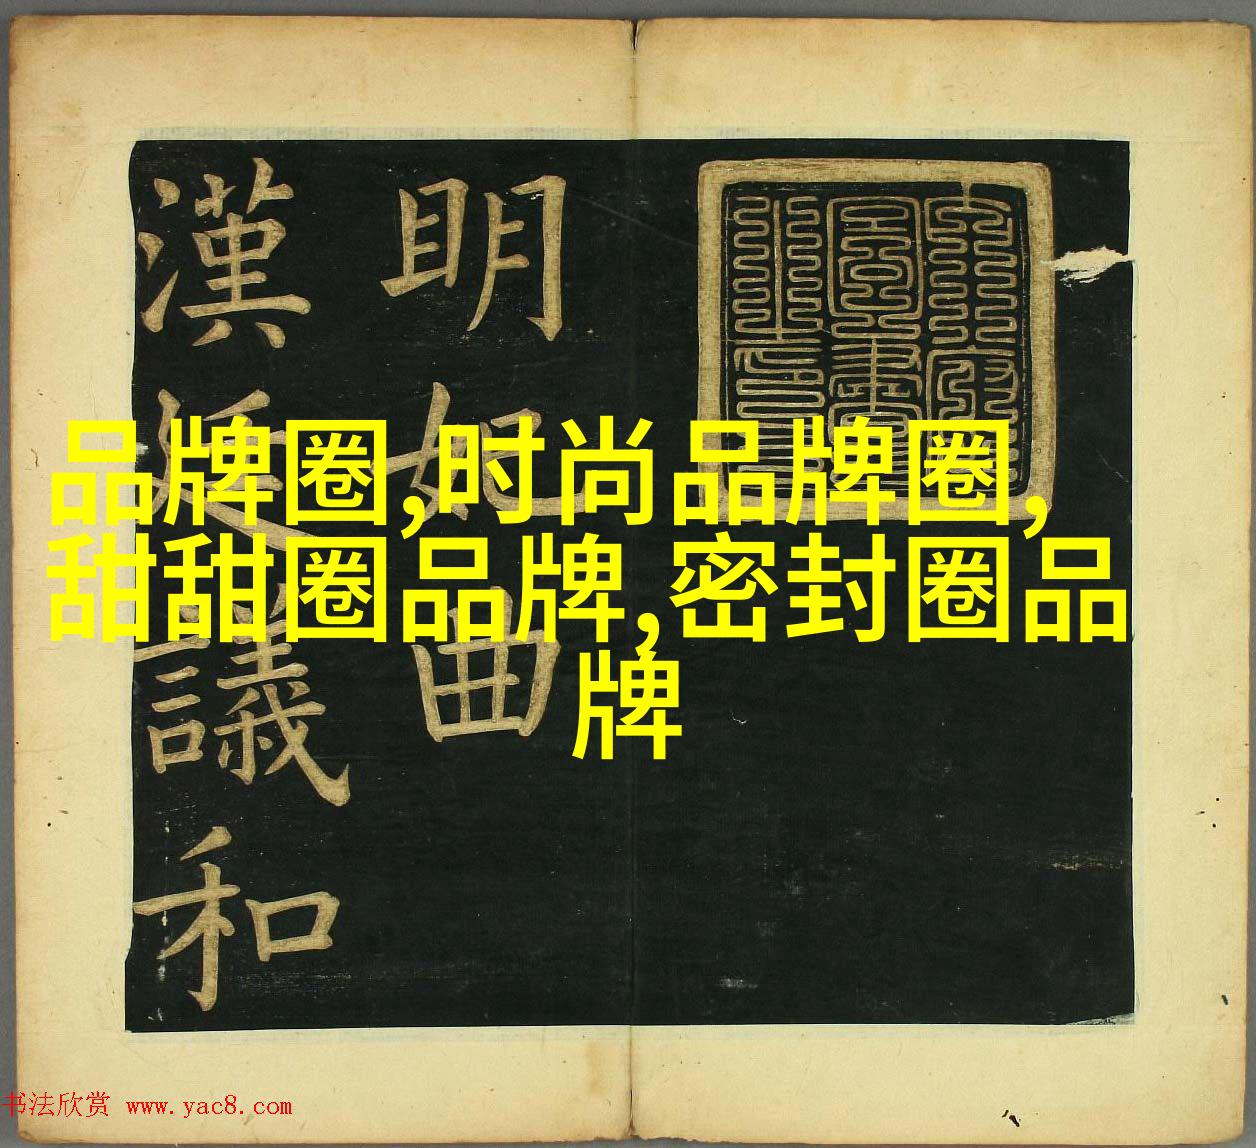 明妃曲
漢廷議和
品牌圈,时尚品牌圈,
甜甜圈品牌,密封圈品
牌
书法欣赏 www.yac8.com